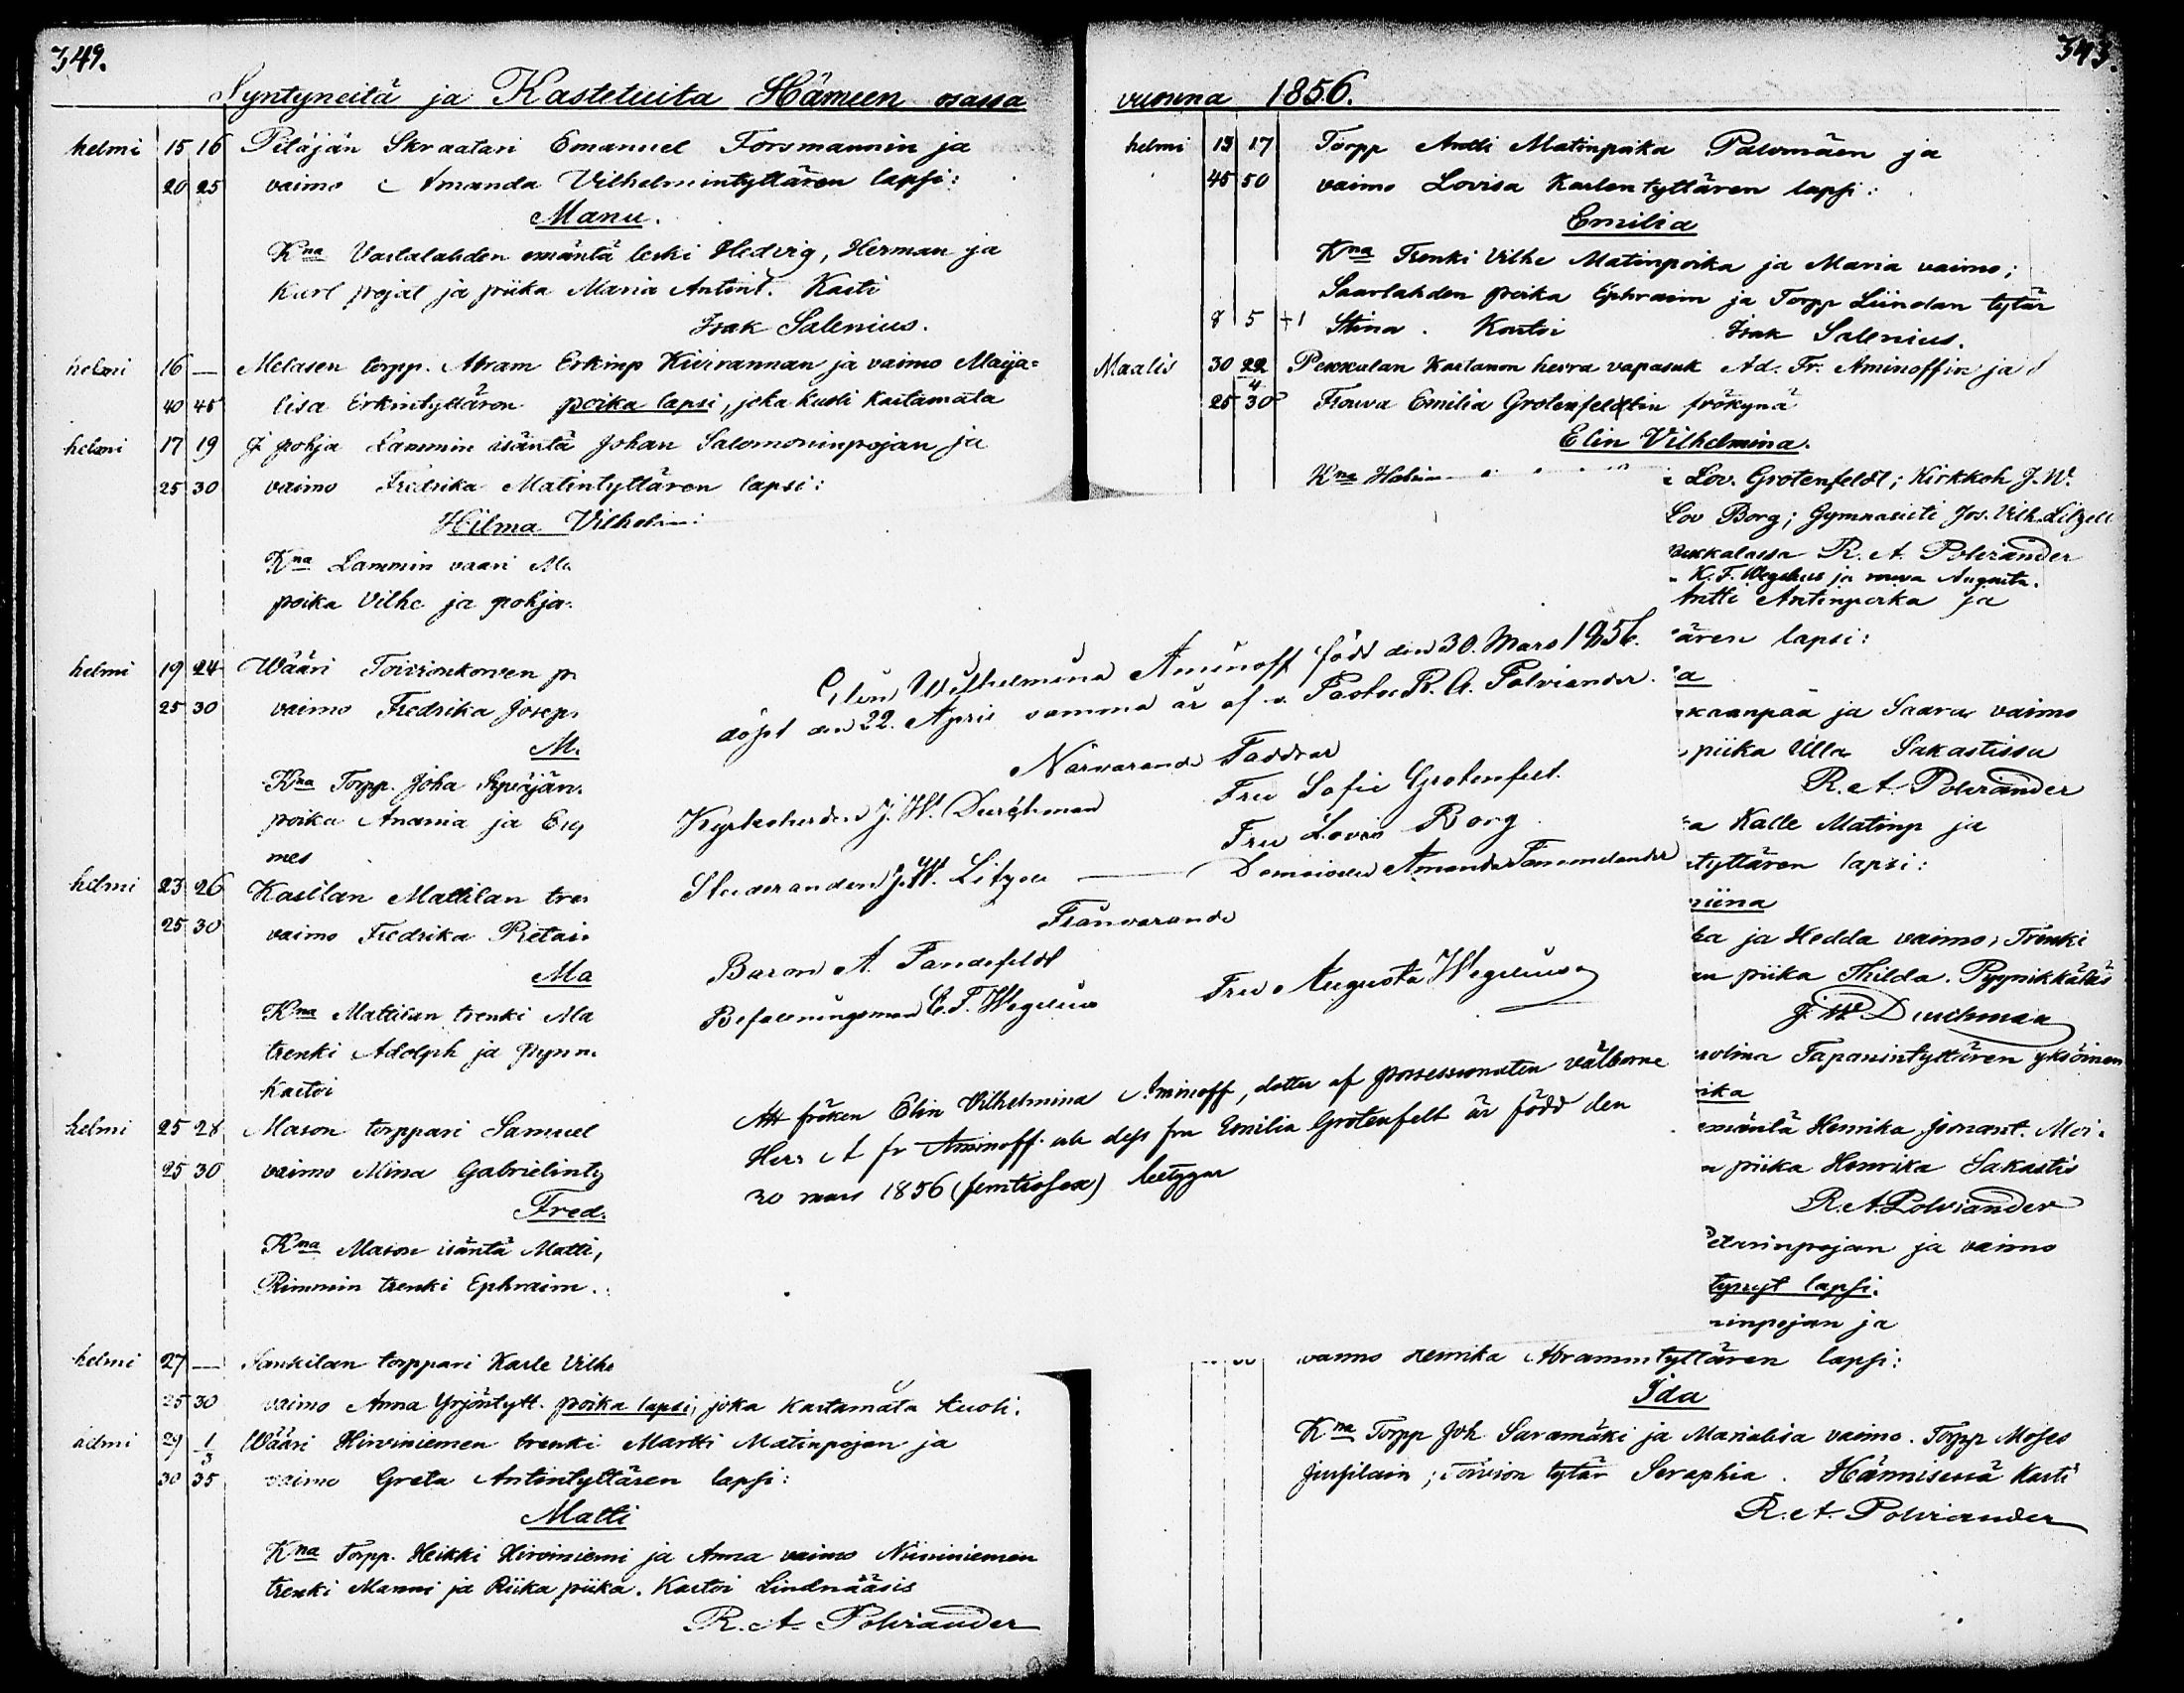 349.
Syntyneitä ja Kastetuita Hämeen osassa
helmi 15 16 Pitäjän Skraatari Emanuel Forsmannin ja
20 25 vaimo Amanda Vilhelmintyttären lapsi:
Manu.
Kna Vastalahden emäntä leski Hedvig, Herman ja
Karl pojat ja piika Maria Antint. Kasti
Isak Salenius.
helmi 16 — Melasen torpp. Abram Erkinp Kivirannan ja vaimo Maija=
40 45 lisa Erkintyttären poika lapsi, joka kuoli kastamata
helmi 17 19 J pohja Lammin isäntä Johan Salomoninpojan ja
25 30 vaimo Fredrika Matintyttären lapsi:
Hilma Vilhelmi
Kna Lammin vaari Ma
poika Vilhe ja pohja
helmi 19 24 Wääri Toivionkorven p
25 30 vaimo Fredrika Josep
M
Kna Torpp. Joha
poika Anania ja
mes
helmi 23 26 Kastlan Mattilan tre
25 30 vaimo Fredrika
Ma
Kna Mattilan trenki Ma
trenki Adolph ja Pynn
Kastoi
helmi 25 28 Mason torppari Samuel
25 30 vaimo Mina Gabrielinty
Fred
Kna Mason isäntä Matti,
Rimmin trenki Ephraim.
helmi 27 — torppari Karle Vilhe
25 30 vaimo Anna Yrjöntytt. poika lapsi, joka kastamata kuoli.
29 1/3 Wääri Hirviniemen trenki Martti Matinpojan ja
30 35 vaimo Greta Antintyttären lapsi:
Matti
Kna Torpp. Heikki Hirviniemi ja Anna vaimo Niininiemen
trenki Manni ja Riika piika. Kastoi Lindnääsis
R. A. Polviander
343.
vuonna 1856.
helmi 13 17 Torpp Antti Matinpoika Palomäen ja
45 50 vaimo Lovisa Karlentyttären lapsi:
Emilia
Kna Trenki Vilhe Matinpoika ja Maria vaimo;
Saarlahden poika Ephraim ja Torpp Liindan tytär
8 5 +1 Stina. Kastoi Isak Salenius.
Maalis 30 22/4 Pekkalan Kartanon herra vapasuk Ad. Fr. Aminoffin ja
25 30 Frouva Emilia Grotenfeldtin frökynä
Elin Vilhelmina.
Kna
Lov. Grotenfeldt; Kirkkoh J. W.
Lov Borg; Gymnasisti Jos. Vilh. Litzell
R. A. Polviander
K. F. Wegelius ja rouva Augusta.
Antti Antinpoika ja
ären lapsi:
a
kaanpää ja Saara vaimo
piika Ulla Sakastissa
R. A. Polviander
a Kalle Matinp ja
tyttären lapsi:
riina
ka ja Hedda vaimo; Trenki
en piika Thilda.
J. W. Durchman
rolina Tapanintyttären yksöinen
ika
emäntä Henrika
piika Henrika Sakastis
R. A. Polviander
etarinpojan ja vaimo
lapsi.
ninpojan ja
vaimo Henrika Abramintyttären lapsi:
Ida
Kna Torpp Joh Saramäki ja Marialisa vaimo. Torpp Moses
Jusilain; Toivion tytär Seraphia. Hännisessä Kasti
R. A. Polviander
Elin Wilhelmina Aminoff född den 30. Mars 1856.
döpt den 22. April samma år af v. Pastor R. A. Polviander.
Närvarande Faddrar
Kyrkoherden J. W. Durchman Fru Sofie Grotenfelt.
Fru Lovis Borg.
Studeranden J. W. Litzell — Demoiselle Amanda Tammelander
Frånvarande
Baron A. Fandefeldt
Befallningsman C. F. Wegelius Fru Augusta Wegelius
Att fröken Elin Vilhelmina Aminoff, dotter af possessionaten välborne
Herr A fr Aminoff och dess fru Emilia Grotenfelt är född den
30 mars 1856 (femtiosex) betygar